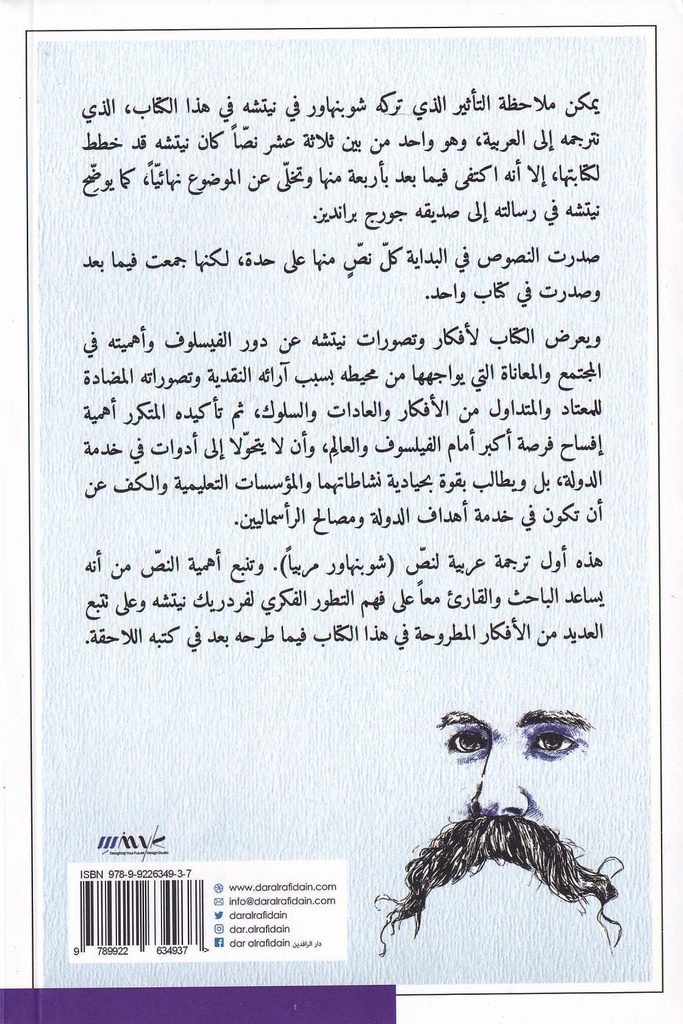 يمكن ملاحظة التأثير الذي تركه شوبنهاور في نيتشه في هذا الكتاب، الذي
نترجمه إلى العربية، وهو واحد من بين ثلاثة عشر نصّاً كان نيتشه قد خطط
لكتابتها، إلا أنه اكتفى فيما بعد بأربعة منها وتخلّى عن الموضوع نهائيّاً، كما يوضّح
نيتشه في رسالته إلى صديقه جورج برانديز.
صدرت النصوص في البداية كلّ نصٍّ منها على حدة، لكنها جمعت فيما بعد
وصدرت في كتاب واحد.
ويعرض الكتاب لأفكار وتصورات نيتشه عن دور الفيسلوف وأهميته في
المجتمع والمعاناة التي يواجهها من محيطه بسبب آرائه النقدية وتصوراته المضادة
للمعتاد والمتداول من الأفكار والعادات والسلوك، ثم تأكيده المتكرر أهمية
إفساح فرصة أكبر أمام الفيلسوف والعالِم، وأن لا يتحوّلا إلى أدوات في خدمة
الدولة، بل ويطالب بقوة بحيادية نشاطاتهما والمؤسسات التعليمية والكف عن
أن تكون في خدمة أهداف الدولة ومصالح الرأسماليين.
هذه أول ترجمة عربية لنصّ (شوبنهاور مربياً). وتنبع أهمية النصّ من أنه
يساعد الباحث والقارئ معاً على فهم التطور الفكري لفردريك نيتشه وعلى تتبع
العديد من الأفكار المطروحة في هذا الكتاب فيما طرحه بعد في كتبه اللاحقة.
Designing Your Future Design Studio
ISBN 978-9-9226349-3-7
9 789922 634937 >
www.daralrafidain.com
info@daralrafidain.com
daralrafidain
dar.alrafidain
dar alrafidain دار الرافدين